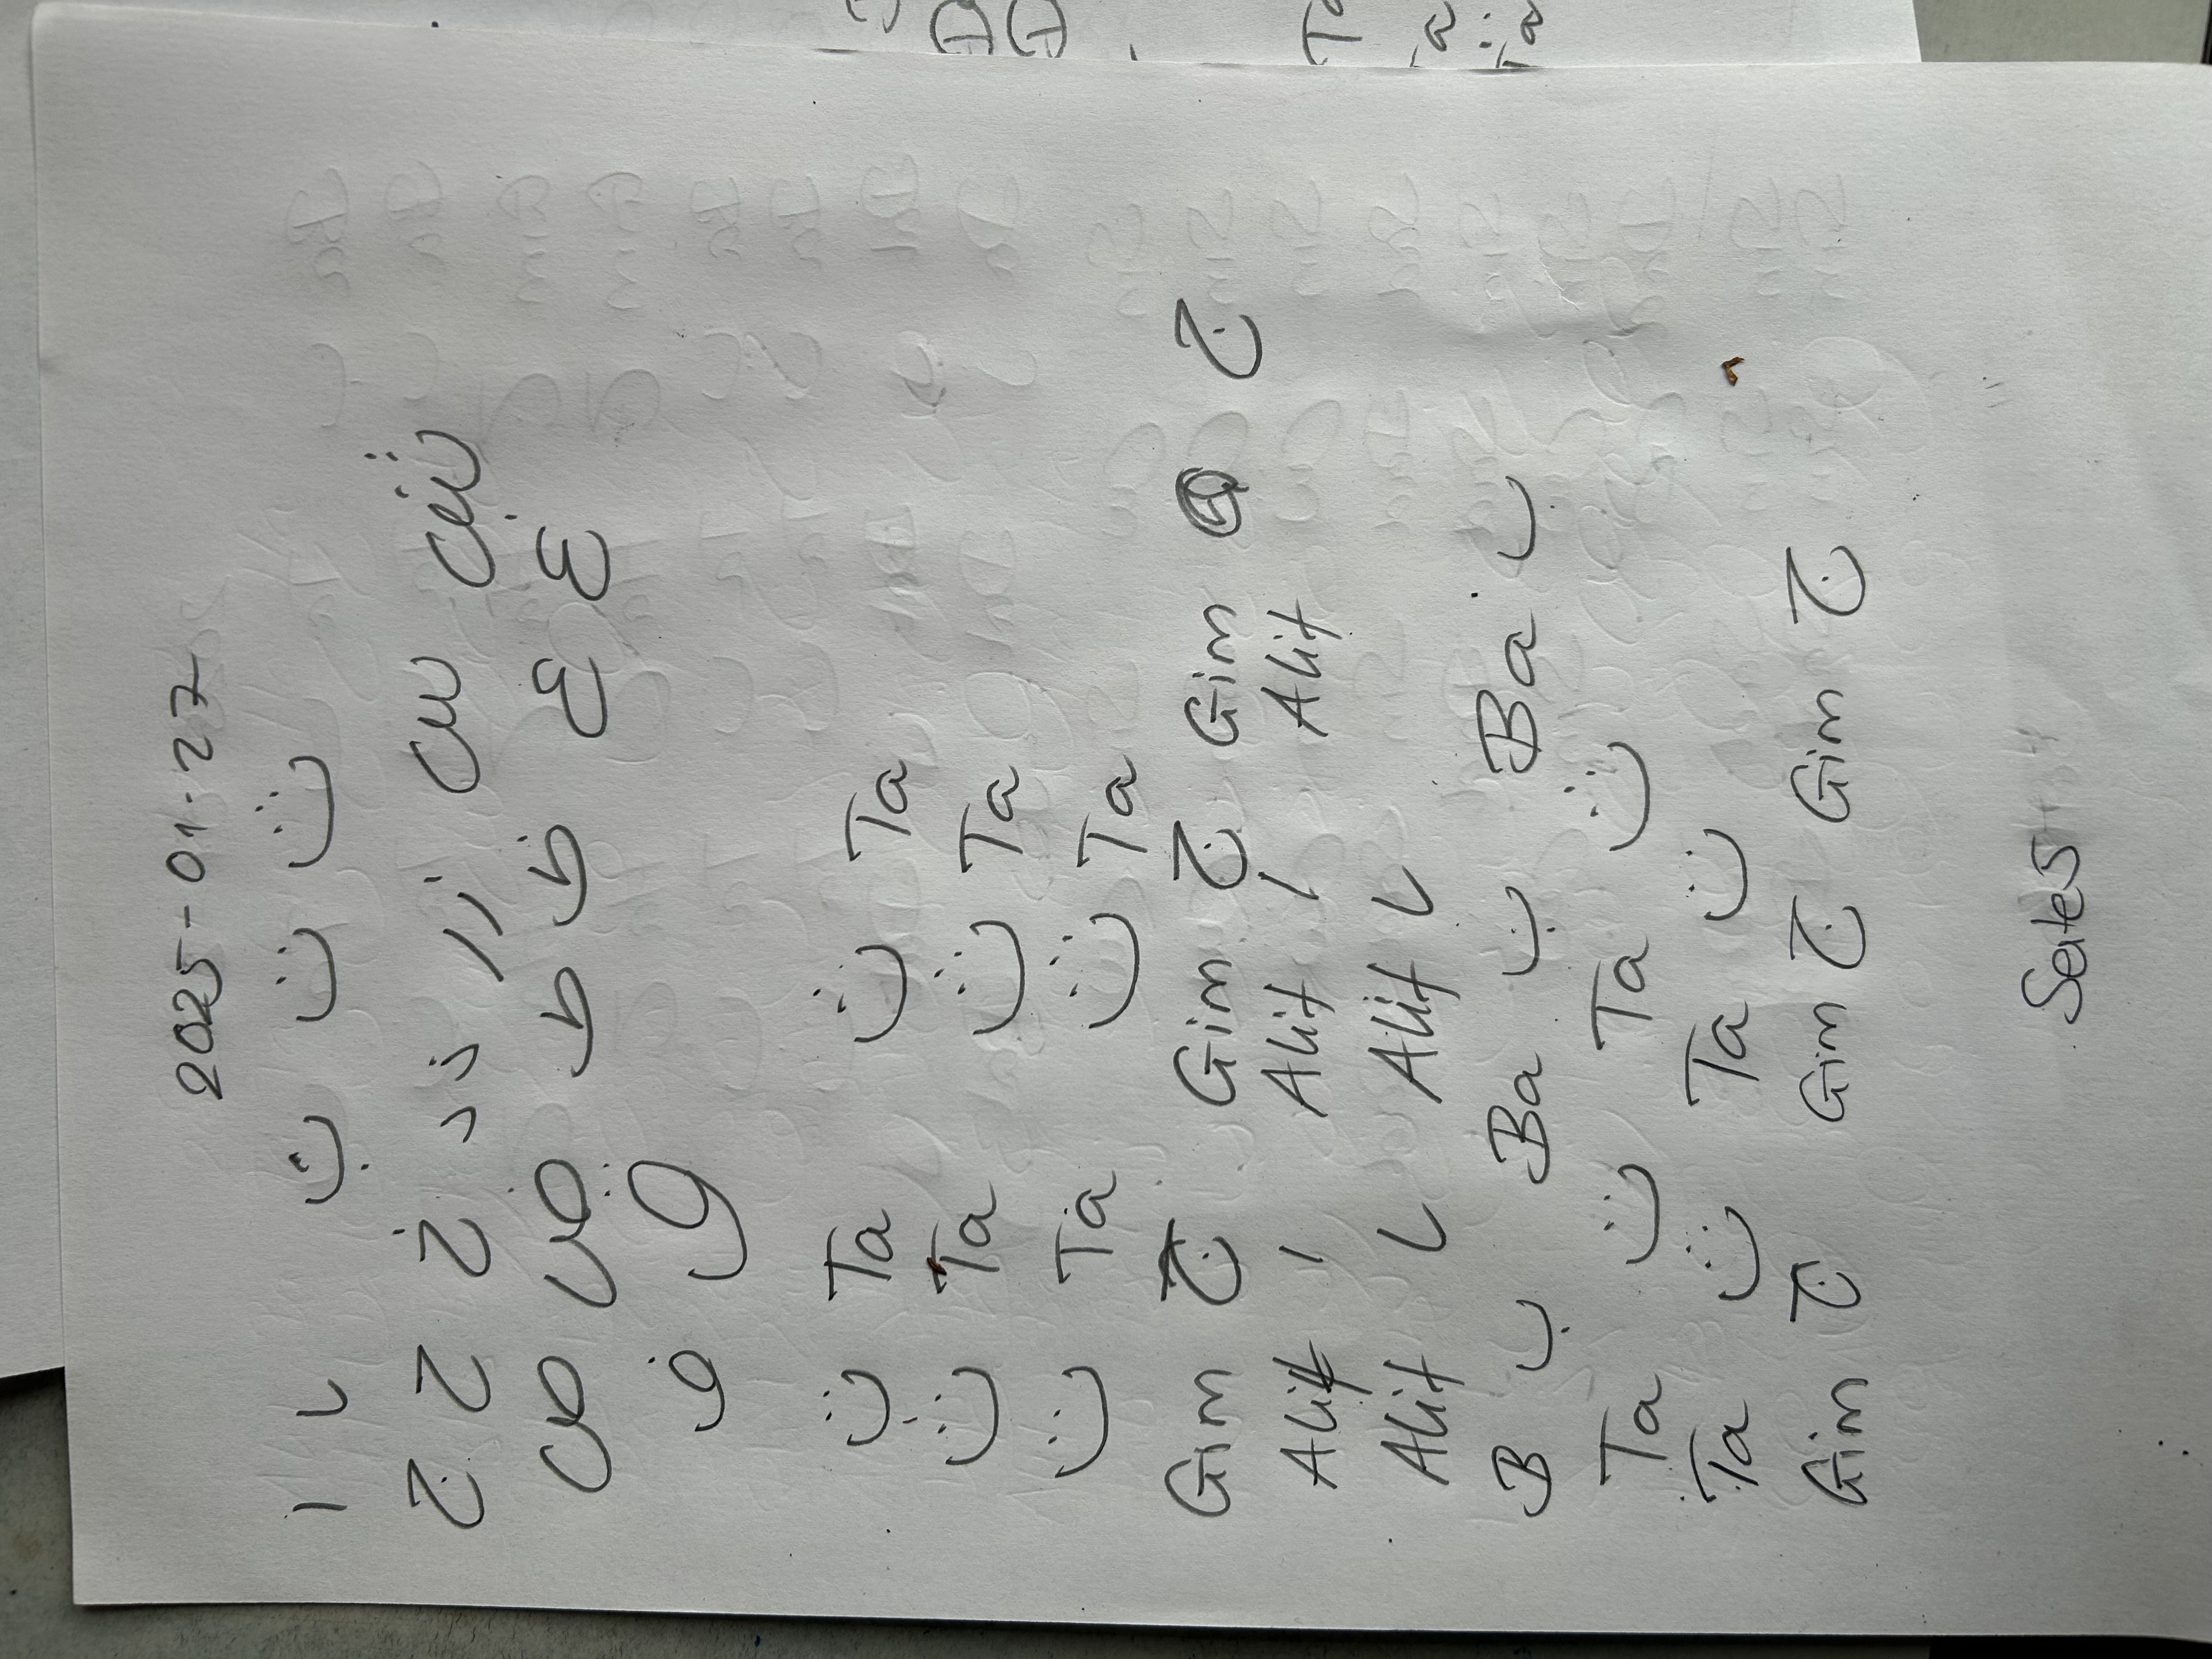 2025-01-27
ا ا ب ت ث
ج ح خ د ذ ر ز س ش
ص ض ط ظ ع غ
ف ق
ت Ta ث Ta
ث Ta ث Ta
ت Ta ث Ta
Gim ج Gim ج Gim ج
Alif ا Alif ا Alif
Alif ا Alif ا
B ب Ba ب Ba ب
Ta ت Ta ث
Ta ت Ta ت
Gim ج Gim ج Gim ج
Seite 5